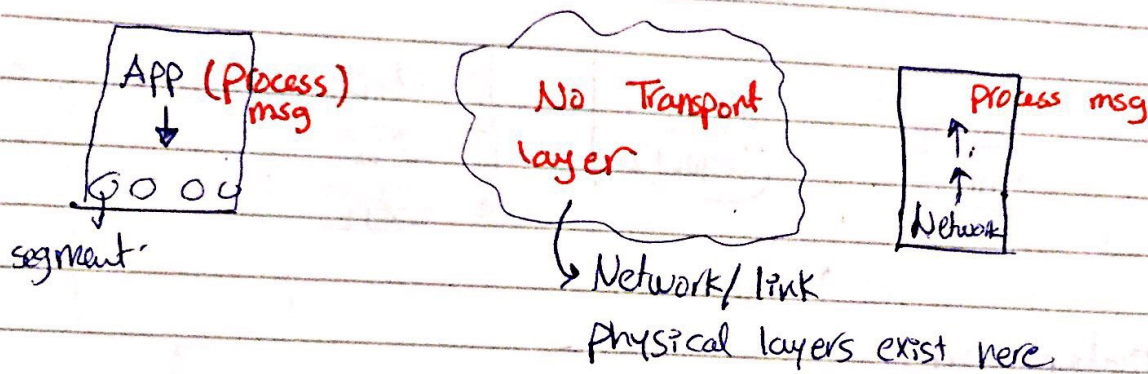 App (Process)
msg
segment
No Transport
layer
Network/link
physical layers exist here
process msg
Network